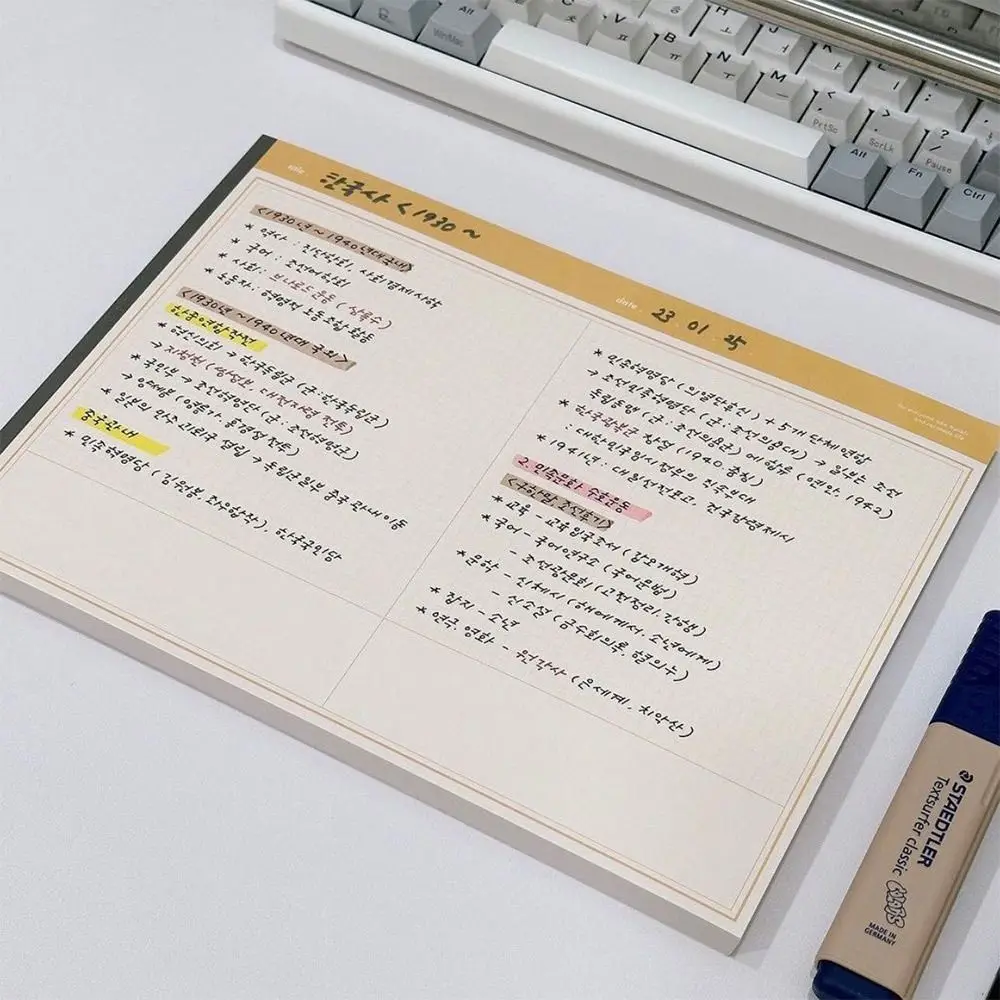 title
한국사 <1930~
date. 23. 01. 25.
<1930년~1940년대 국내>
* 역사 : 진단학회, 사회경제사학
* 국어 : 조선어학회
* 사회 : 브나로드 운동 (상록수)
* 노동자 : 혁명적 노동조합 활동
<1930년~1940년대 국외>
한중연합작전
* 혁신의회 → 한국독립군 (군 : 한국독립군)
→ 지청천 (쌍성보, 대전자령 전투)
* 국민부 → 조선혁명당 (군 : 조선혁명군)
→ 양세봉 (영릉가, 흥경성 전투)
* 일본의 만주
→ 독립군 일부 중국 관내 이동
중국 관내
* 민족혁명당 (김원봉 좌우합작), 한국국민당
* 민족혁명당 (의열단 중심) + 5개 단체 연합
→ 조선민족혁명당 (군 : 조선의용대) → 일부는 조선
독립동맹 (군 : 조선의용군) 에 합류 (연안, 1942)
* 한국광복군 창설 (1940. 충칭)
: 대한민국임시정부의 직속부대
* 1941년 : 대일선전포고, 건국강령 제시
2. 민족문화 수호운동
<국권피탈
* 교육 - 교육입국조서 (갑오개혁)
* 국어 - 국어연구소 (국어문법)
- 조선광문회 (고전정리, 간행)
* 문학 - 신체시 (해에게서 소년에게)
- 신소설 (금수회의록, 혈의누)
* 잡지 - 소년
* 연극. 영화 - 원각사 (은세계, 치악산)
Alt
Win/Mac
C ㅊ
V ㅍ
B ㅠ
N ㅜ
M ㅡ
H ㅗ
J ㅓ
K ㅏ
L ㅣ
PrtSc
ScrLk
Pause
Alt
Fn
Ctrl
STAEDTLER
Textsurfer classic
MADE IN
GERMANY